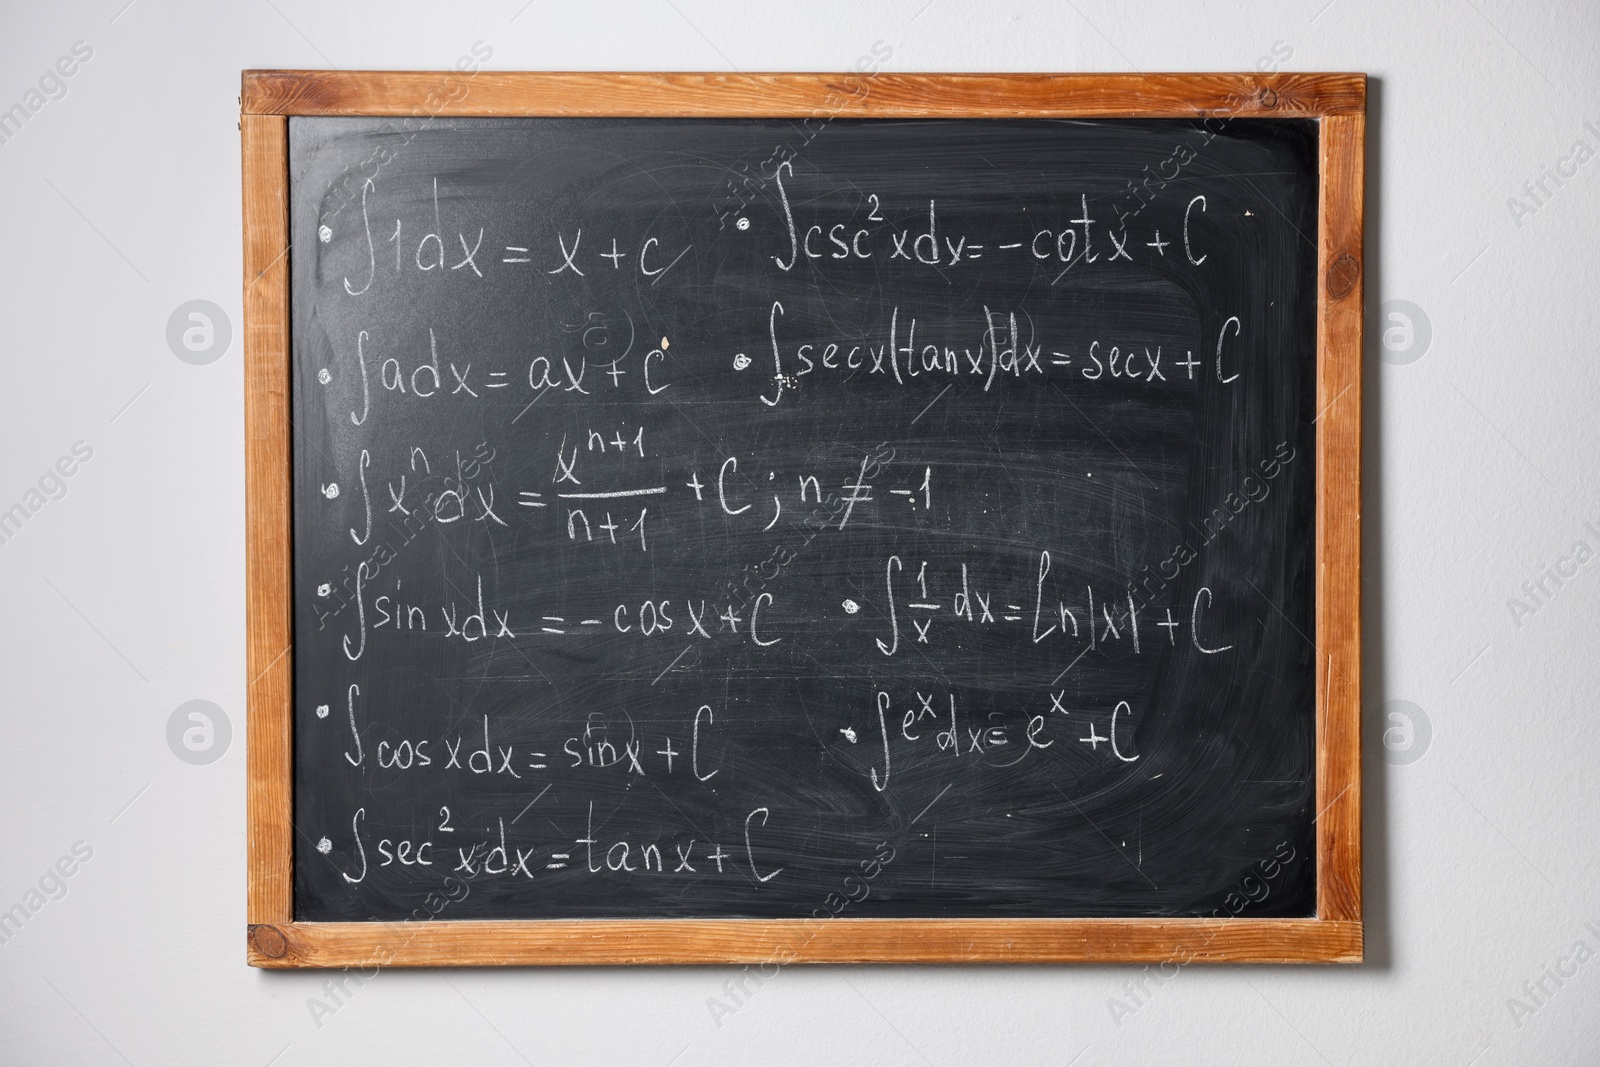 • ∫1dx = x + c
• ∫adx = ax + C
• ∫xⁿdx = xⁿ⁺¹/n+1 + C ; n ≠ -1
• ∫sin xdx = - cosx + C
• ∫cosxdx = sinx + C
• ∫sec²xdx = tanx + C
• ∫csc²xdx = - cotx + C
• ∫secx(tanx)dx = secx + C
• ∫1/x dx = ln|x| + C
• ∫eˣdx = eˣ + C
Africa Images
a